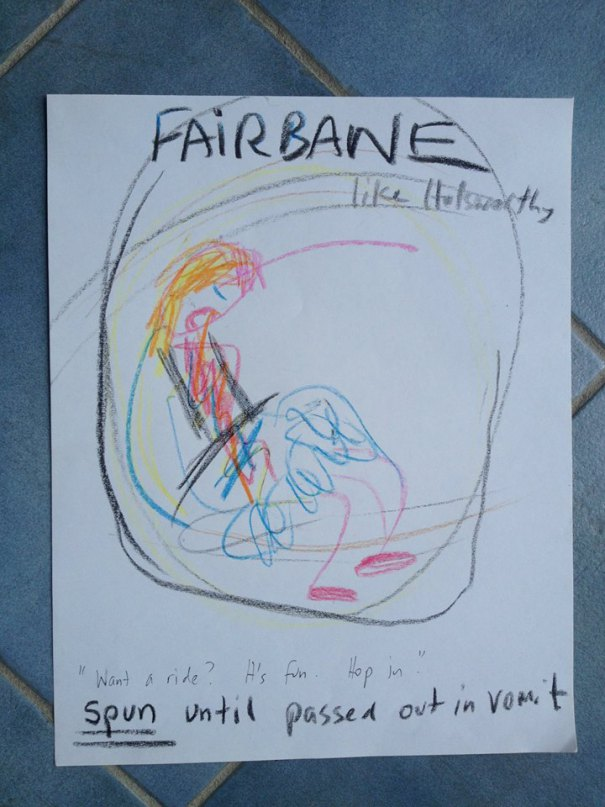 FAIRBANE
like Holsworthy
"Want a ride? It's fun. Hop in."
Spun until passed out in vomit